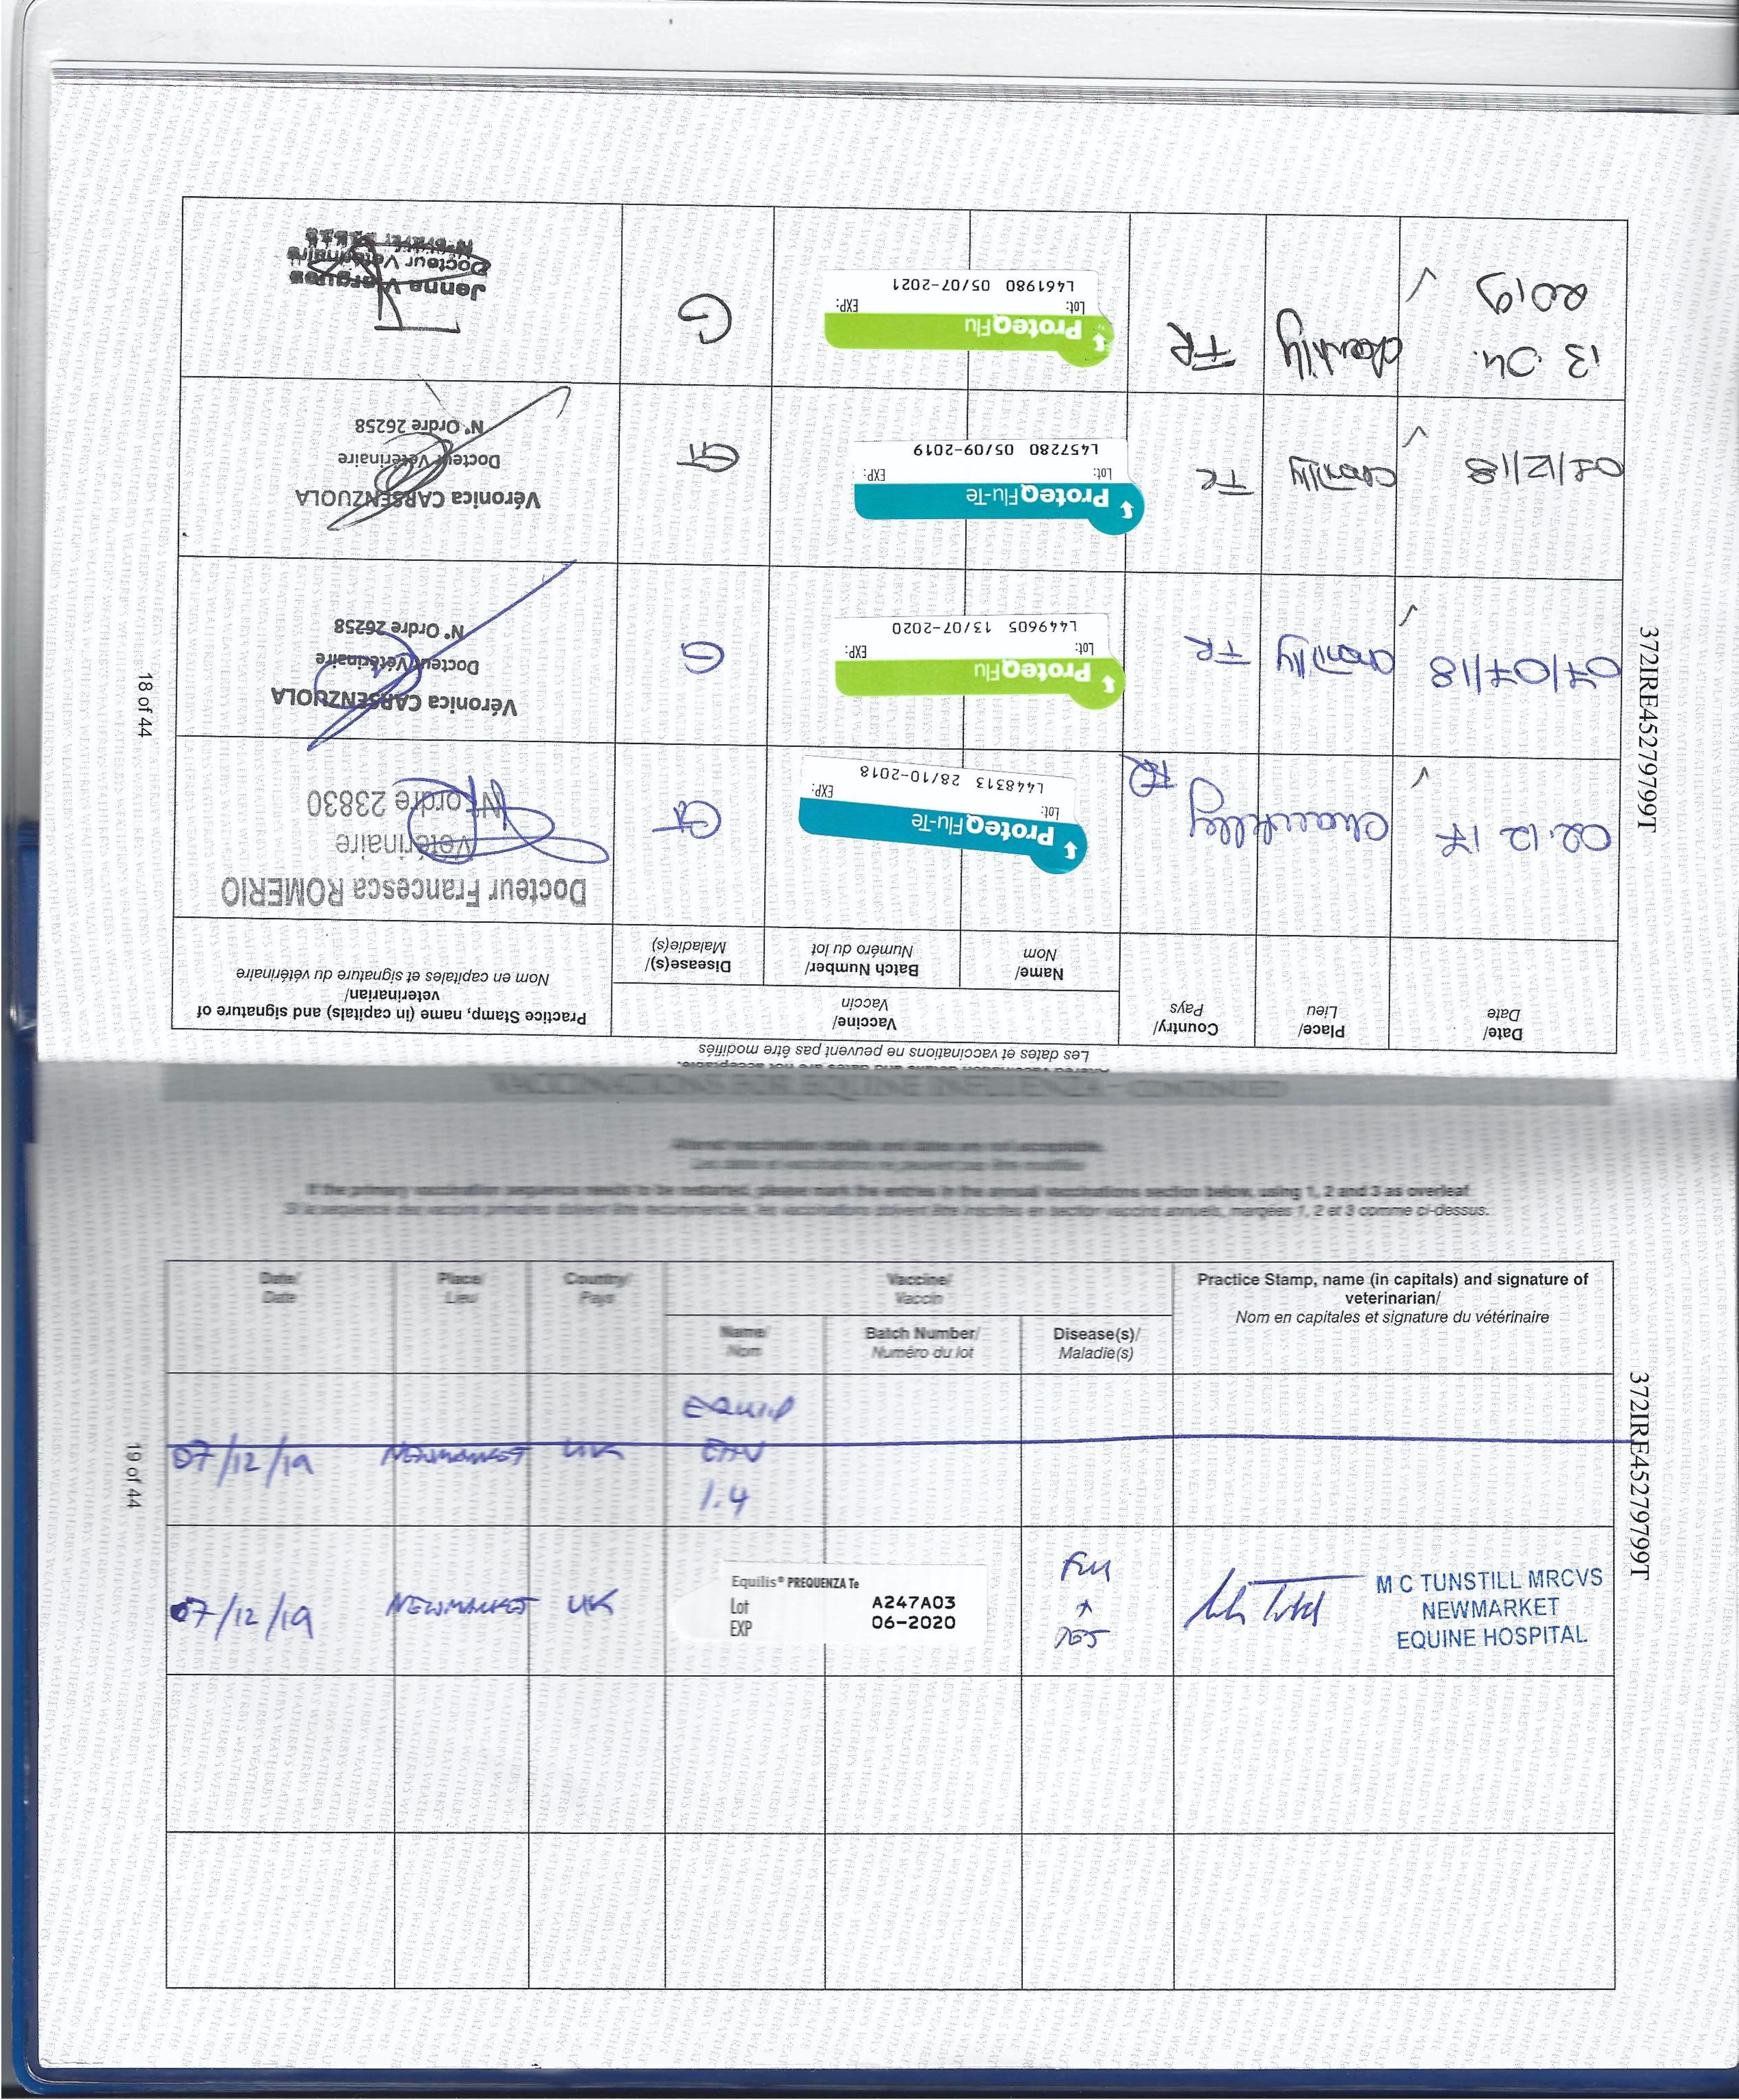 Les dates et vaccinations ne peuvent pas être modifiés
Date/
Date
Place/
Lieu
Country/
Pays
Vaccine/
Vaccin
Name/
Nom
Batch Number/
Numéro du lot
Disease(s)/
Maladie(s)
Practice Stamp, name (in capitals) and signature of
veterinarian/
Nom en capitales et signature du vétérinaire
02.12.17
Chantilly
FR
ProteqFlu-Te
Lot: EXP:
L448313 28/10-2018
GT
Docteur Francesca ROMERIO
Vétérinaire
N° ordre 23830
07/07/18
Chantilly
FR
ProteqFlu
Lot: EXP:
L449605 13/07-2020
G
Véronica CARSENZUOLA
Docteur Vétérinaire
N° Ordre 26258
Chantilly
FR
ProteqFlu-Te
Lot: EXP:
L457280 05/09-2019
GT
Véronica CARSENZUOLA
Docteur Vétérinaire
N° Ordre 26258
13.04.
2019
Chantilly
FR
ProteqFlu
Lot: EXP:
L461980 05/07-2021
G
Docteur Vétérinaire
18 of 44
372IRE45279799T
VACCINATIONS FOR EQUINE INFLUENZA - CONTINUED
Altered vaccination details and dates are not acceptable.
Les dates et vaccinations ne peuvent pas être modifiés
If the primary vaccination sequence needs to be restarted, please mark the entries in the annual vaccinations section below, using 1, 2 and 3 as overleaf
Si la séquence des vaccins primaires doivent être recommencés, les vaccinations doivent être inscrites en section vaccins annuels, marqées 1, 2 et 3 comme ci-dessus.
Date/
Date
Place/
Lieu
Country/
Pays
Vaccine/
Vaccin
Name/
Nom
Batch Number/
Numéro du lot
Disease(s)/
Maladie(s)
Practice Stamp, name (in capitals) and signature of
veterinarian/
Nom en capitales et signature du vétérinaire
07/12/19
NEWMARKET
UK
EQUIP
EHV
1.4
07/12/19
NEWMARKET
UK
Equilis® PREQUENZA Te
Lot A247A03
EXP 06-2020
FLU
+
TET
M C TUNSTILL MRCVS
NEWMARKET
EQUINE HOSPITAL
19 of 44
372IRE45279799T